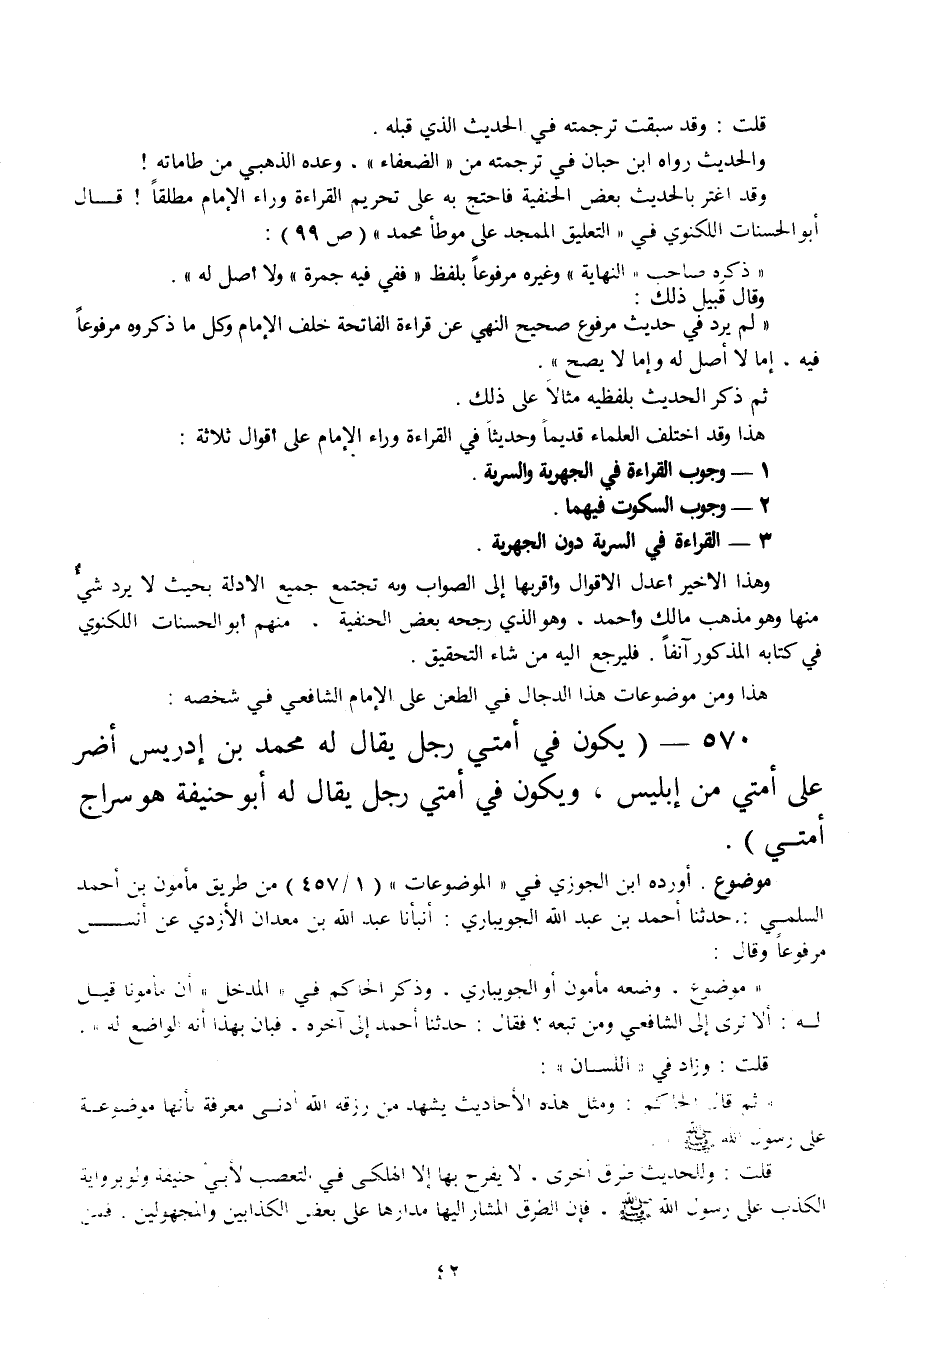 قلت : وقد سبقت ترجمته في الحديث الذي قبله .
والحديث رواه ابن حبان في ترجمته من « الضعفاء » . وعده الذهبي من طاماته !
وقد اغتر بالحديث بعض الحنفية فاحتج به على تحريم القراءة وراء الإمام مطلقاً ! قـــال
أبو الحسنات اللكنوي في « التعليق الممجد على موطأ محمد » ( ص ٩٩ ) :
« ذكره صاحب « النهاية » وغيره مرفوعاً بلفظ « ففي فيه جمرة » ولا اصل له » .
وقال قبيل ذلك :
« لم يرد في حديث مرفوع صحيح النهي عن قراءة الفاتحة خلف الإمام وكل ما ذكروه مرفوعاً
فيه . إما لا أصل له وإما لا يصح » .
ثم ذكر الحديث بلفظيه مثالاً على ذلك .
هذا وقد اختلف العلماء قديماً وحديثاً في القراءة وراء الإمام على اقوال ثلاثة :
١ — وجوب القراءة في الجهرية والسرية .
٢ — وجوب السكوت فيهما .
٣ — القراءة في السرية دون الجهرية .
وهذا الاخير اعدل الاقوال واقربها إلى الصواب وبه تجتمع جميع الادلة بحيث لا يرد شيء
منها وهو مذهب مالك واحمد . وهو الذي رجحه بعض الحنفية . منهم ابو الحسنات اللكنوي
في كتابه المذكور آنفاً . فليرجع اليه من شاء التحقيق .
هذا ومن موضوعات هذا الدجال في الطعن على الإمام الشافعي في شخصه :
٥٧٠ — ( يكون في أمتي رجل يقال له محمد بن إدريس أضر
على أمتي من إبليس ، ويكون في أمتي رجل يقال له أبو حنيفة هو سراج
أمتـــي ) .
موضوع . أورده ابن الجوزي في « الموضوعات » ( ١/ ٤٥٧ ) من طريق مأمون بن أحمد
السلمي : حدثنا أحمد بن عبد الله الجويباري : أنبأنا عبد الله بن معدان الأزدي عن أنـــس
مرفوعاً وقال :
« موضوع . وضعه مأمون أو الجويباري . وذكر الحاكم في « المدخل » أن مأمونا قيـل
لـه : ألا ترى إلى الشافعي ومن تبعه ؟ فقال : حدثنا أحمد إلى آخره . فبان بهذا أنه الواضع له » .
قلت : وزاد في « اللسان » :
« ثم قال الحاكم : ومثل هذه الأحاديث يشهد من رزقه الله أدنى معرفة بأنها موضوعـة
على رسول الله ﷺ » .
قلت : وللحديث طرق أخرى . لا يفرح بها إلا الهلكى في التعصب لأبي حنيفة ولو برواية
الكذب على رسول الله ﷺ . فإن الطرق المشار اليها مدارها على بعض الكذابين والمجهولين . فمن
٤٢